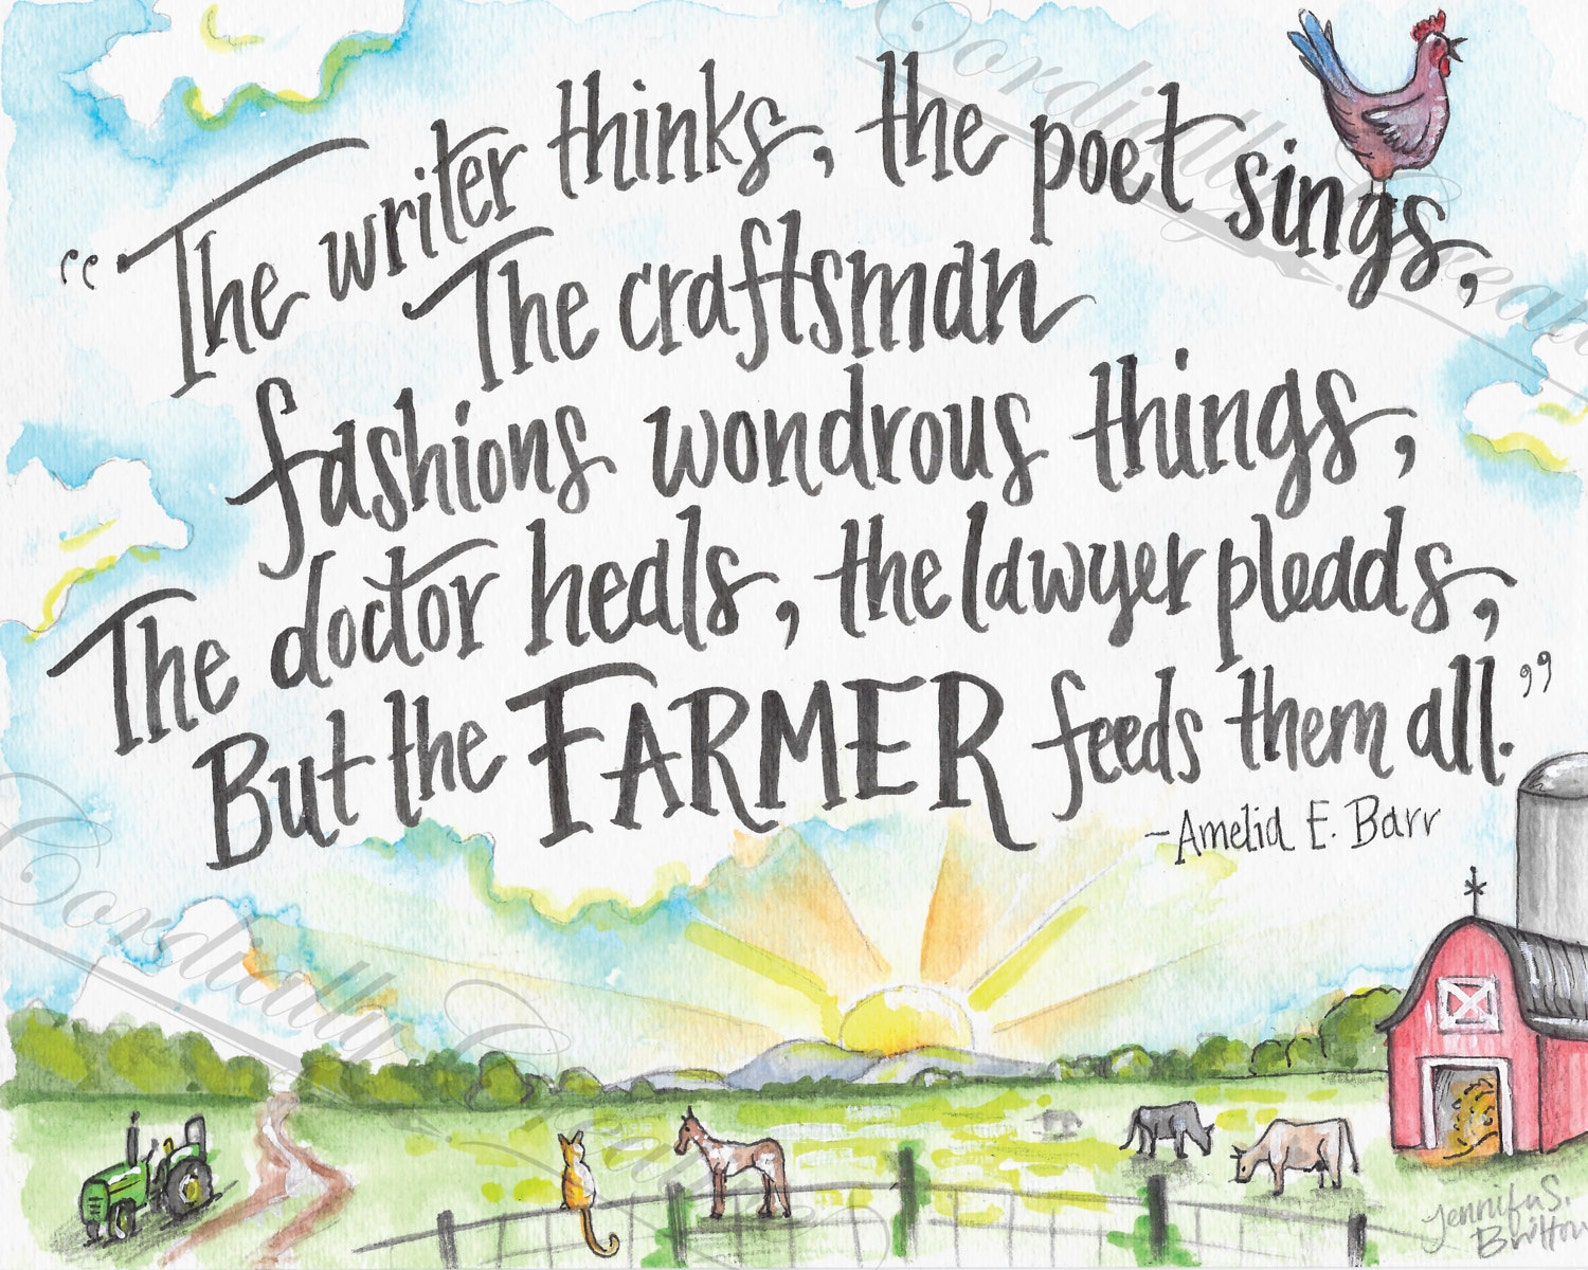 “The writer thinks, the poet sings,
The craftsman
fashions wondrous things,
The doctor heals, the lawyer pleads,
But the FARMER feeds them all.”
-Amelia E. Barr
Cordially Creative
Cordially Creative
Jennifer S.
Britton